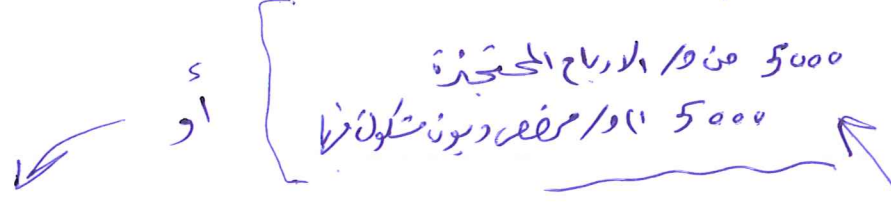 5000 من ح/ الارباح المحتجزة
5000 الى ح/ مخصص ديون مشكوك فيها
أو